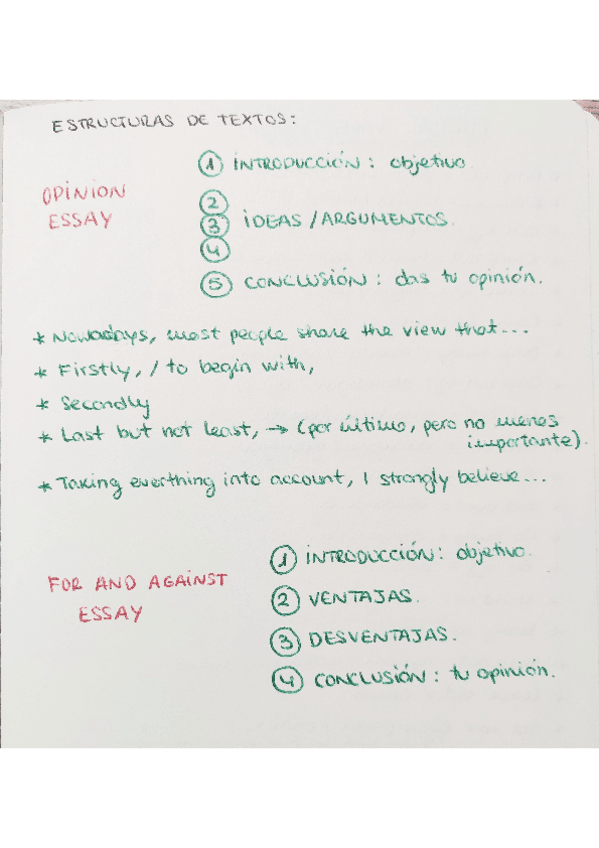 ESTRUCTURAS DE TEXTOS:
OPINION ESSAY
① INTRODUCCIÓN: objetivo.
②
③ IDEAS / ARGUMENTOS.
④
⑤ CONCLUSIÓN: das tu opinión.
* Nowadays, most people share the view that...
* Firstly, / to begin with,
* Secondly
* Last but not least, → (por último, pero no menos
importante).
* Taking everthing into account, I strongly believe...
FOR AND AGAINST
ESSAY
① INTRODUCCIÓN: objetivo.
② VENTAJAS.
③ DESVENTAJAS.
④ CONCLUSIÓN: tu opinión.